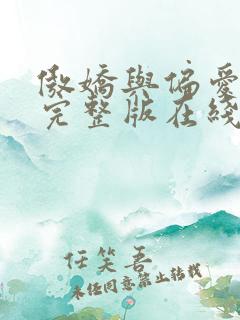 傲嬌與偏愛
完整版在綫
任笑吾
未经同意禁止转载